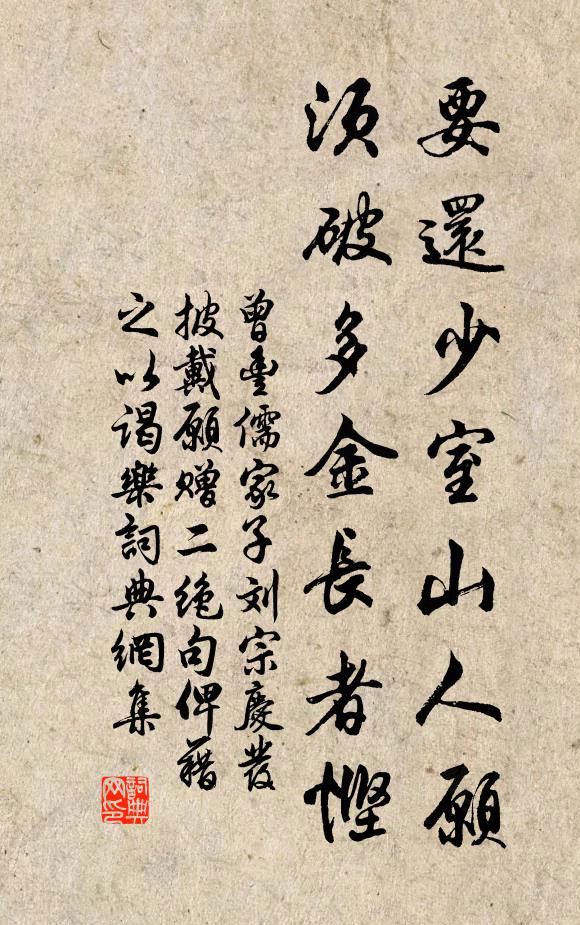 要還少室山人願
須破多金長者慳
曾豐儒家子刘宗慶發
披戴願赠二绝句俾藉
之以谒樂詞典網集
詞典网印